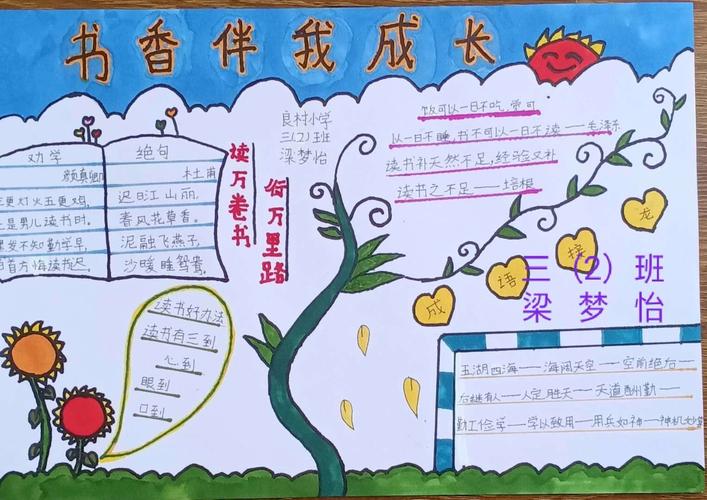 书香伴我成长
良村小学
三(2)班
梁梦怡
劝学
颜真卿
三更灯火五更鸡,
是男儿读书时,
发不知勤学早,
首方悔读书迟。
绝句
杜甫
迟日江山丽,
春风花草香。
泥融飞燕子,
沙暖睡鸳
读万卷书
行万里路
饭可以一日不吃,觉可
以一日不睡,书不可以一日不读——毛泽东
读书补天然不足,经验又补
读书之不足——培根
成语接龙
三(2)班
梁梦怡
读书好办法
读书有三到
心到
眼到
口到
五湖四海——海阔天空——空前绝后——
后继有人——人定胜天——天道酬勤——
勤工俭学——学以致用——用兵如神——神机妙算